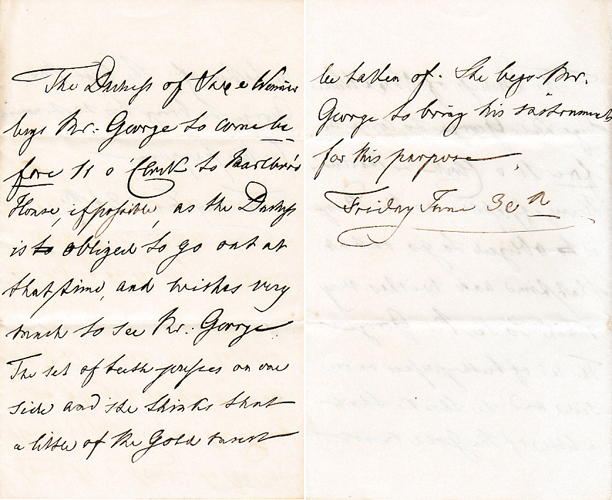 The Duchess of Saxe Weimar
begs Mr. George to come be
fore 11 o'Clock to Marlboro'
House, if possible, as the Duchess
is to obliged to go out at
that time, and wishes very
much to see Mr. George.
The set of teeth presses on one
side and she thinks that
a little of the Gold must
be taken of. She begs Mr.
George to bring his instruments
for this purpose.
Friday June 30th